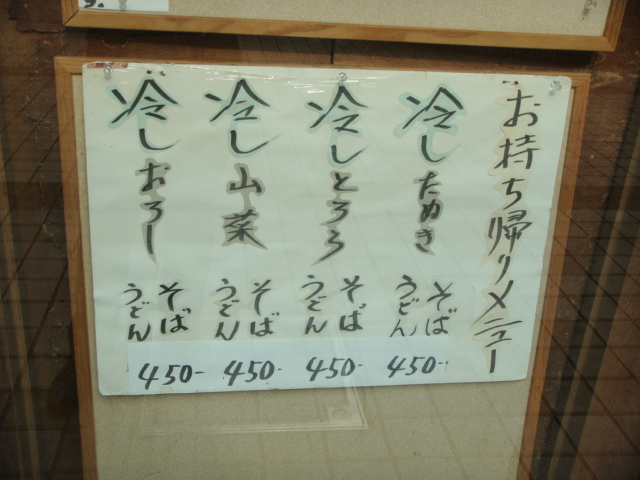 お持ち帰りメニュー
冷したぬき
そば
うどん
450-
冷しとろろ
そば
うどん
450-
冷し山菜
そば
うどん
450-
冷しおろし
そば
うどん
450-